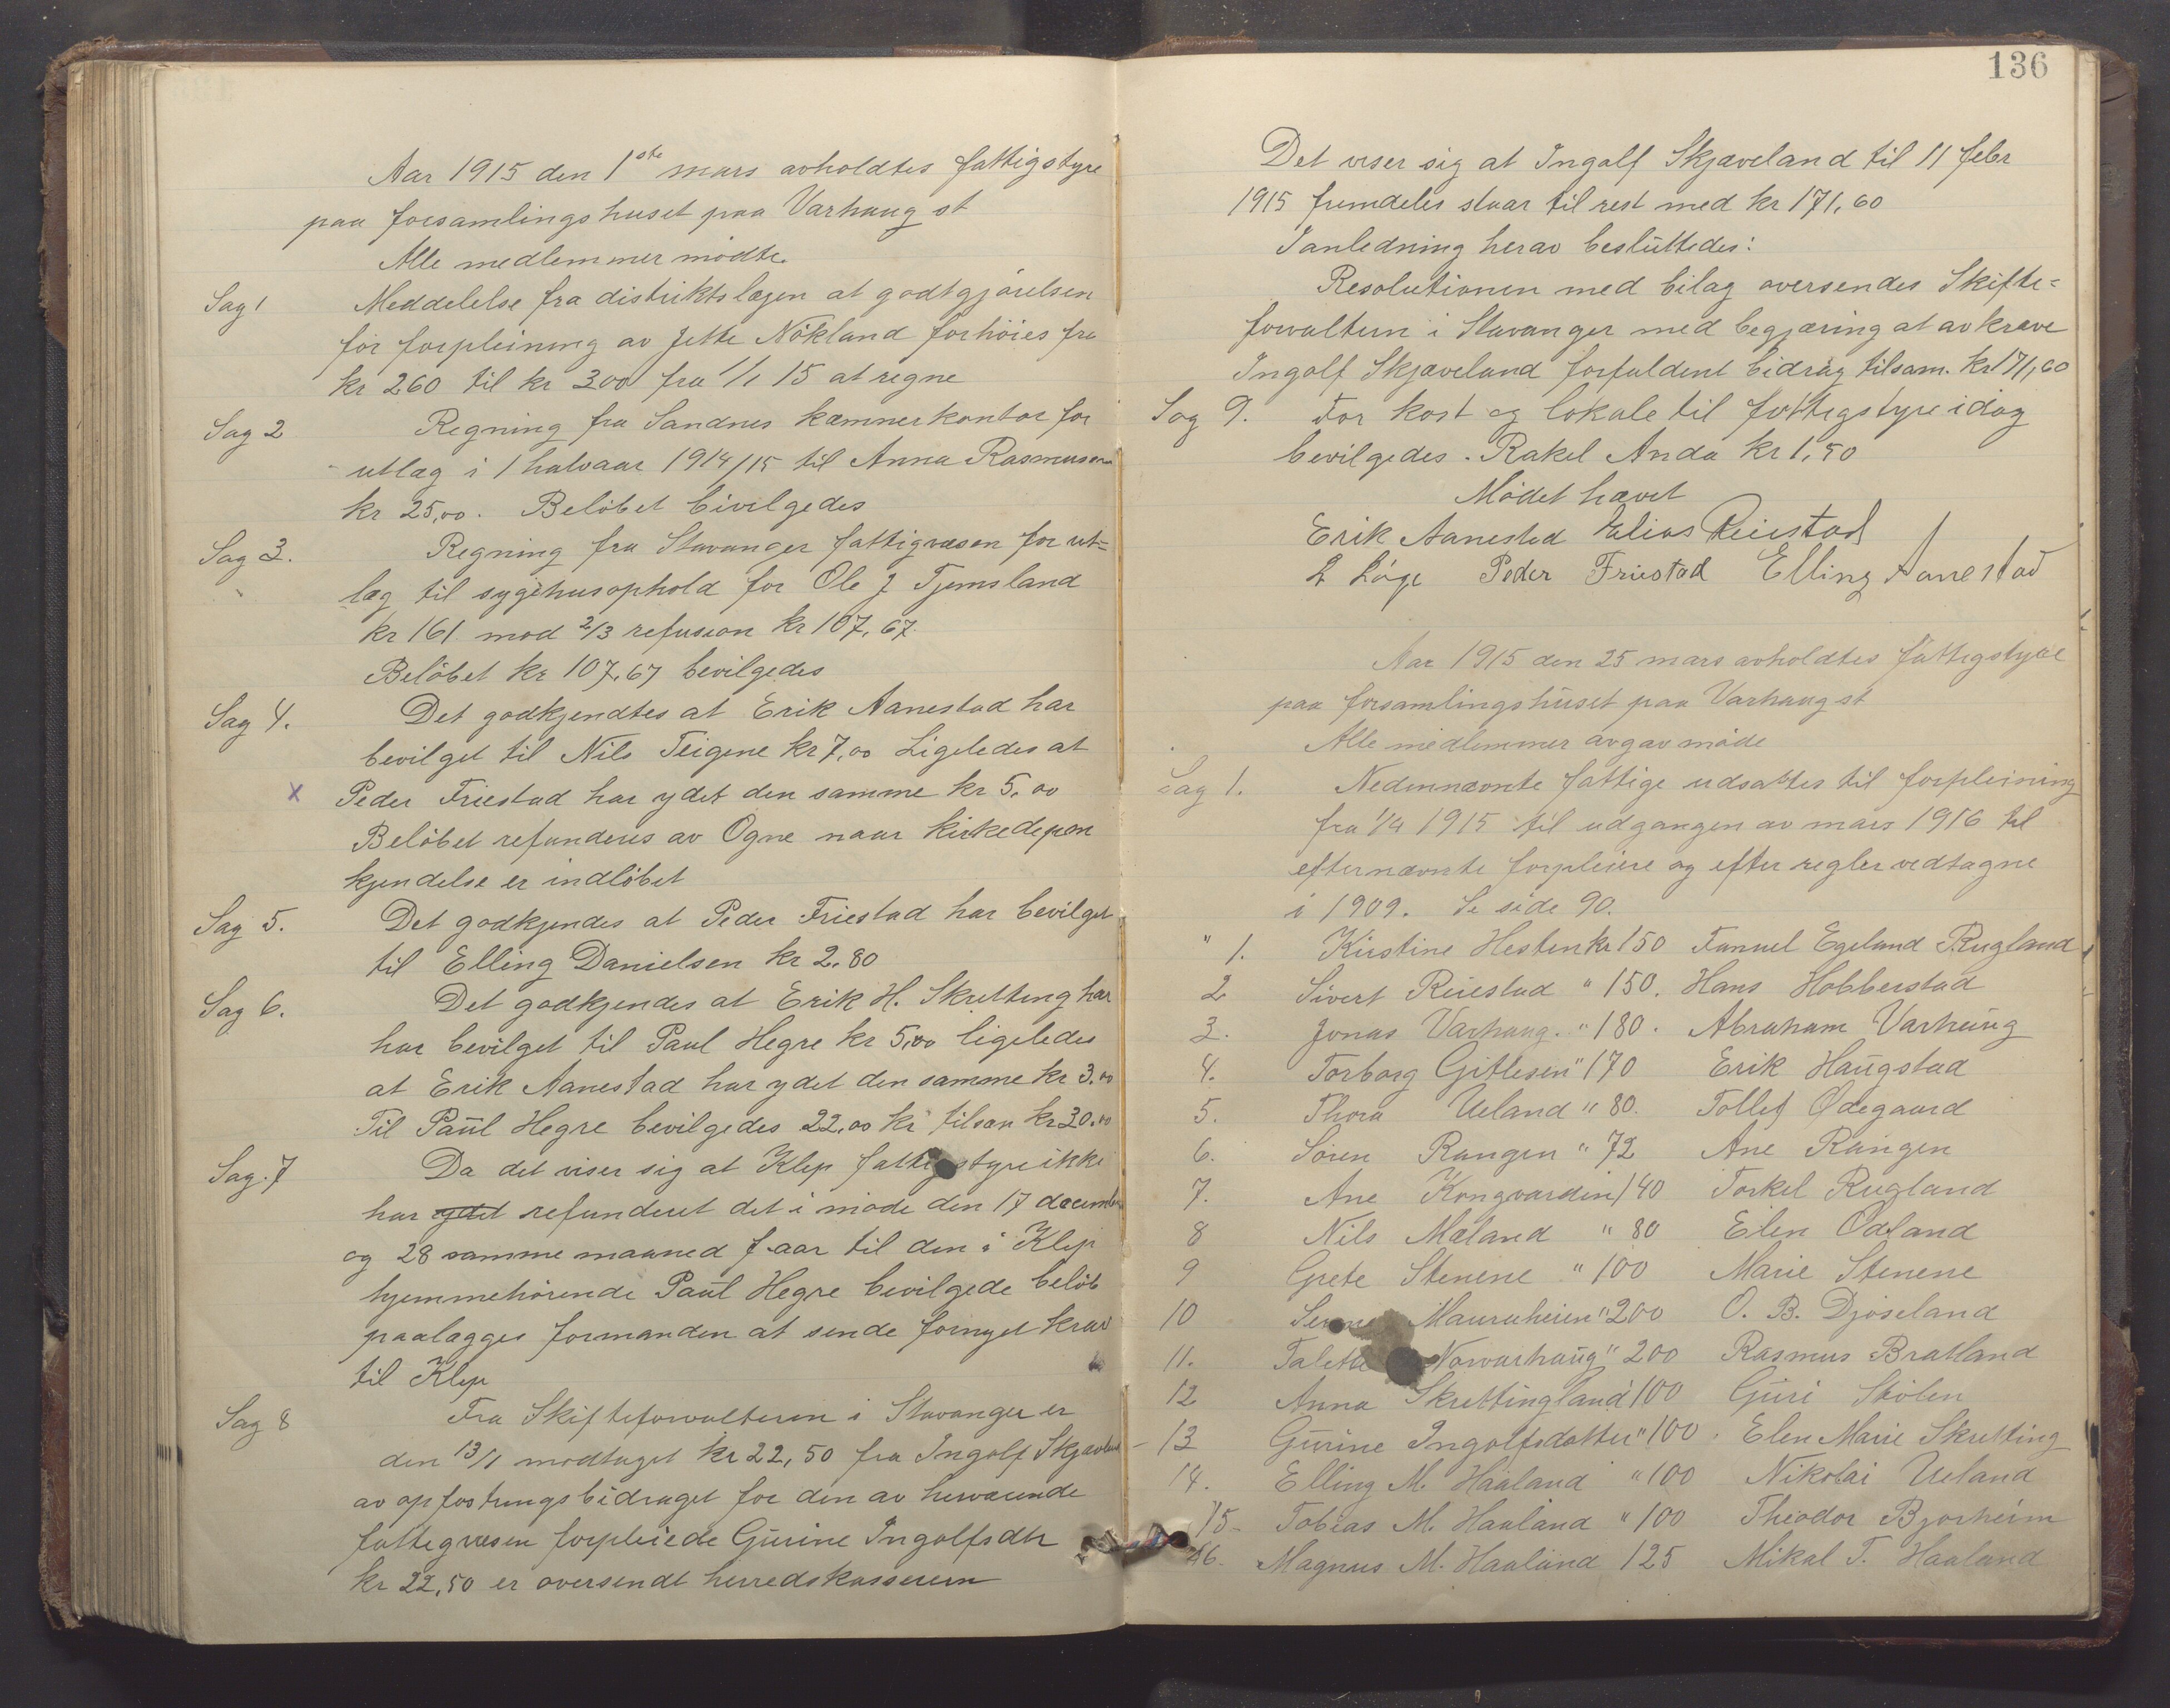 Aar 1915 den 1ste mars avholdtes fattigstyre
paa forsamlingshuset paa Varhaug st
Alle medlemmer mødte.
Sag 1 Meddelelse fra distriktslægen at godtgjørelsen
for forpleining av Jette Nökland forhöies fra
kr 260 til kr 300 fra 1/1 15 at regne
Sag 2 Regning fra Sandnes kæmnerkontor for
utlæg i 1 halvaar 1914/15 til Anna Rasmusen
kr 25,00. Belöbet bevilgedes
Sag 3. Regning fra Stavanger fattigvæsen for ut=
læg til sygehusophold for Ole J Tjemsland
kr 161 mod 2/3 refusion kr 107,67.
Belöbet kr 107,67 bevilgedes
Sag 4. Det godkjendtes at Erik Aanestad har
bevilget til Nils Teigene kr 7,00 Ligeledes at
x Peder Friestad har ydet den samme kr 5,00
Belöbet refunderes av Ogne naar kirkedepen
kjendelse er indlöbet
Sag 5. Det godkjendes at Peder Friestad har bevilget
til Elling Danielsen kr 2,80
Sag 6. Det godkjendes at Erik H. Skretting har
har bevilget til Paul Hegre kr 5,00 ligeledes
at Erik Aanestad har ydet den samme kr 3,00
Til Paul Hegre bevilgedes 22,00 kr tilsam kr 30,00
Sag. 7 Da det viser sig at Klep fattigstyre ikke
har ydet refunderet det i möde den 17 december
og 28 samme maaned f. aar til den i Klep
hjemmehörende Paul Hegre bevilgede belöb
paalægges formanden at sende fornyet krav
til Klep
Sag 8 Fra Skifteforvalteren i Stavanger er
den 13/1 modtaget kr 22,50 fra Ingolf Skjæveland
av opfostringsbidraget for den av herværende
fattigvæsen forpleiede Gurine Ingolfsdtr
kr 22,50 er oversendt herredskasserern
136
Det viser sig at Ingolf Skjæveland til 11 febr
1915 fremdeles staar til rest med kr 171,60
I anledning herav besluttedes:
Resolutionen med bilag oversendes Skifte=
forvaltern i Stavanger med begjæring at avkræve
Ingolf Skjæveland forfaldent bidrag tilsam. kr 171,60
Sag 9. For kost og lokale til fattigstyre idag
bevilgedes. Rakel Anda kr 1,50
Mödet hævet
Erik Aanestad Elias Reiestad
L Löge Peder Friestad Elling Aanestad
Aar 1915 den 25 mars avholdtes fattigstyre
paa forsamlingshuset paa Varhaug st
Alle medlemmer avgav möde
Sag 1. Nedennævnte fattige udsattes til forpleining
fra 1/4 1915 til udgangen av mars 1916 til
efternævnte forpleiere og efter regler vedtagne
i 1909. Se side 90.
" 1. Kirstine Hesten kr 150 Fanuel Egeland Rugland
2 Sivert Reiestad " 150. Hans Hobberstad
3. Jonas Varhaug. " 180. Abraham Varhaug
4. Torborg Gitlesen " 170 Erik Haugstad
5. Thora Ueland " 80. Tollef Ødegaard
6. Sören Rangen " 72 Ane Rangen
7. Ane Kongvardin 140 Torkel Rugland
8 Nils Mæland " 80 Elen Odland
9 Grete Stenene " 100 Marie Stenene
10 Mauruheien " 200 O. B. Djöseland
11. Talette Norvarhaug " 200 Rasmus Bratland
12 Anna Skrettingland 100 Guri Stölen
13 Gurine Ingolfsdatter " 100. Elen Marie Skretting
14. Elling M. Haaland " 100 Nikolai Ueland
15. Tobias M. Haaland " 100 Theodor Bjorheim
16. Magnus M. Haaland 125 Mikal T. Haaland